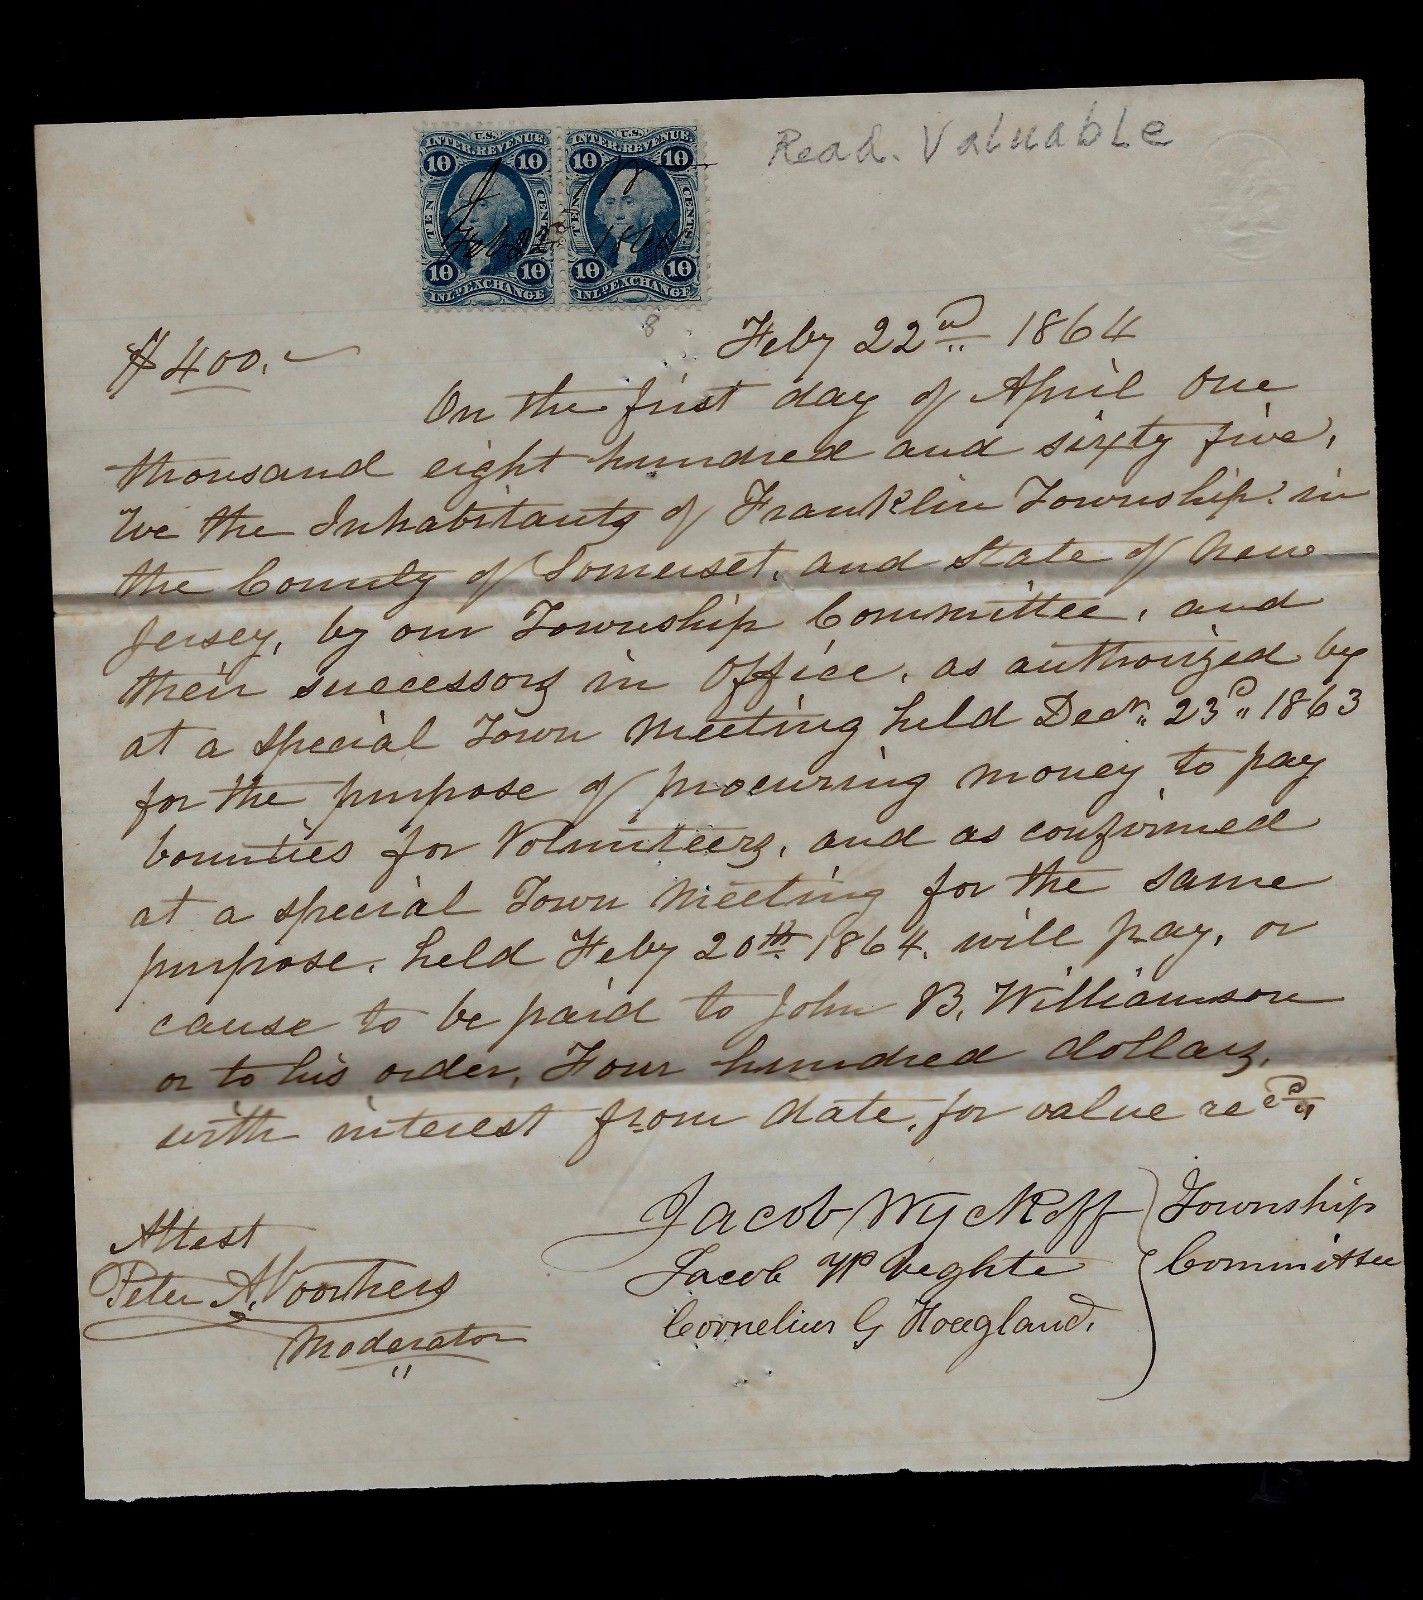 Read. Valuable
U.S. U.S.
INTER. REVENUE. INTER. REVENUE.
10 10 10 10
TEN CENTS TEN CENTS
Feb 22nd 1864
10 10 10 10
INL'D EXCHANGE INL'D EXCHANGE
8
Feby 22nd 1864
$400.
On the first day of April One
thousand eight hundred and sixty five,
We the Inhabitants of Franklin Township in
the County of Somerset, and State of New
Jersey, by our Township Committee, and
their successors in Office, as authorized by
at a special Town Meeting held Decr. 23d 1863
for the purpose of procuring money to pay
bounties for Volunteers, and as confirmed
at a special Town Meeting for the same
purpose, held Feby 20th 1864, will pay, or
cause to be paid to John B. Williamson
or to his order, Four hundred dollars,
with interest from date, for value recd
Jacob Wyckoff } Township
Jacob W Veghte } Committee
Cornelius G Hoagland.
Attest
Peter A. Voorhees
Moderator